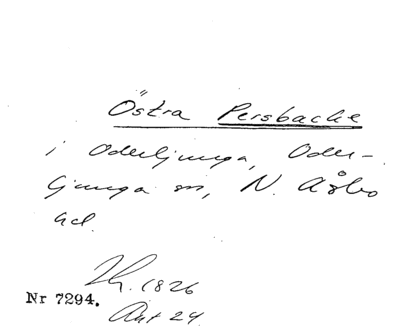 Östra Persbacke
i Oderljunga, Oder-
ljunga sn, N. Åsbo
hd.
Zh. 1826
Nr 7294.
Akt 24.